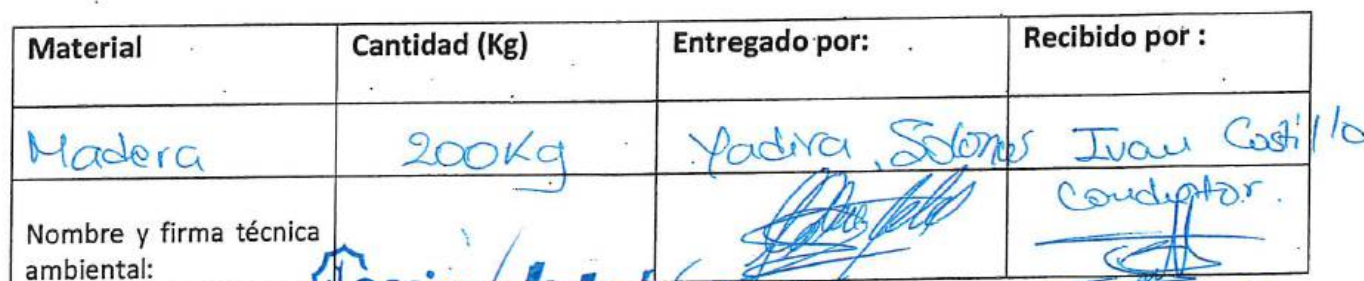 Material Cantidad (Kg) Entregado por: Recibido por :
Madera 200Kg Yadira Ivan Castillo
Conductor.
Nombre y firma técnica
ambiental: